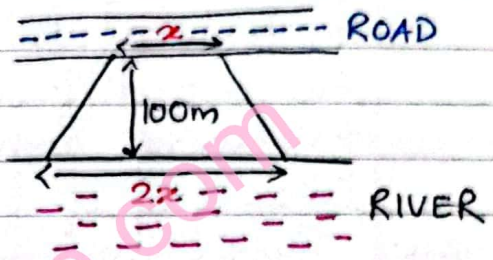 x ROAD
100m
2x
RIVER
com